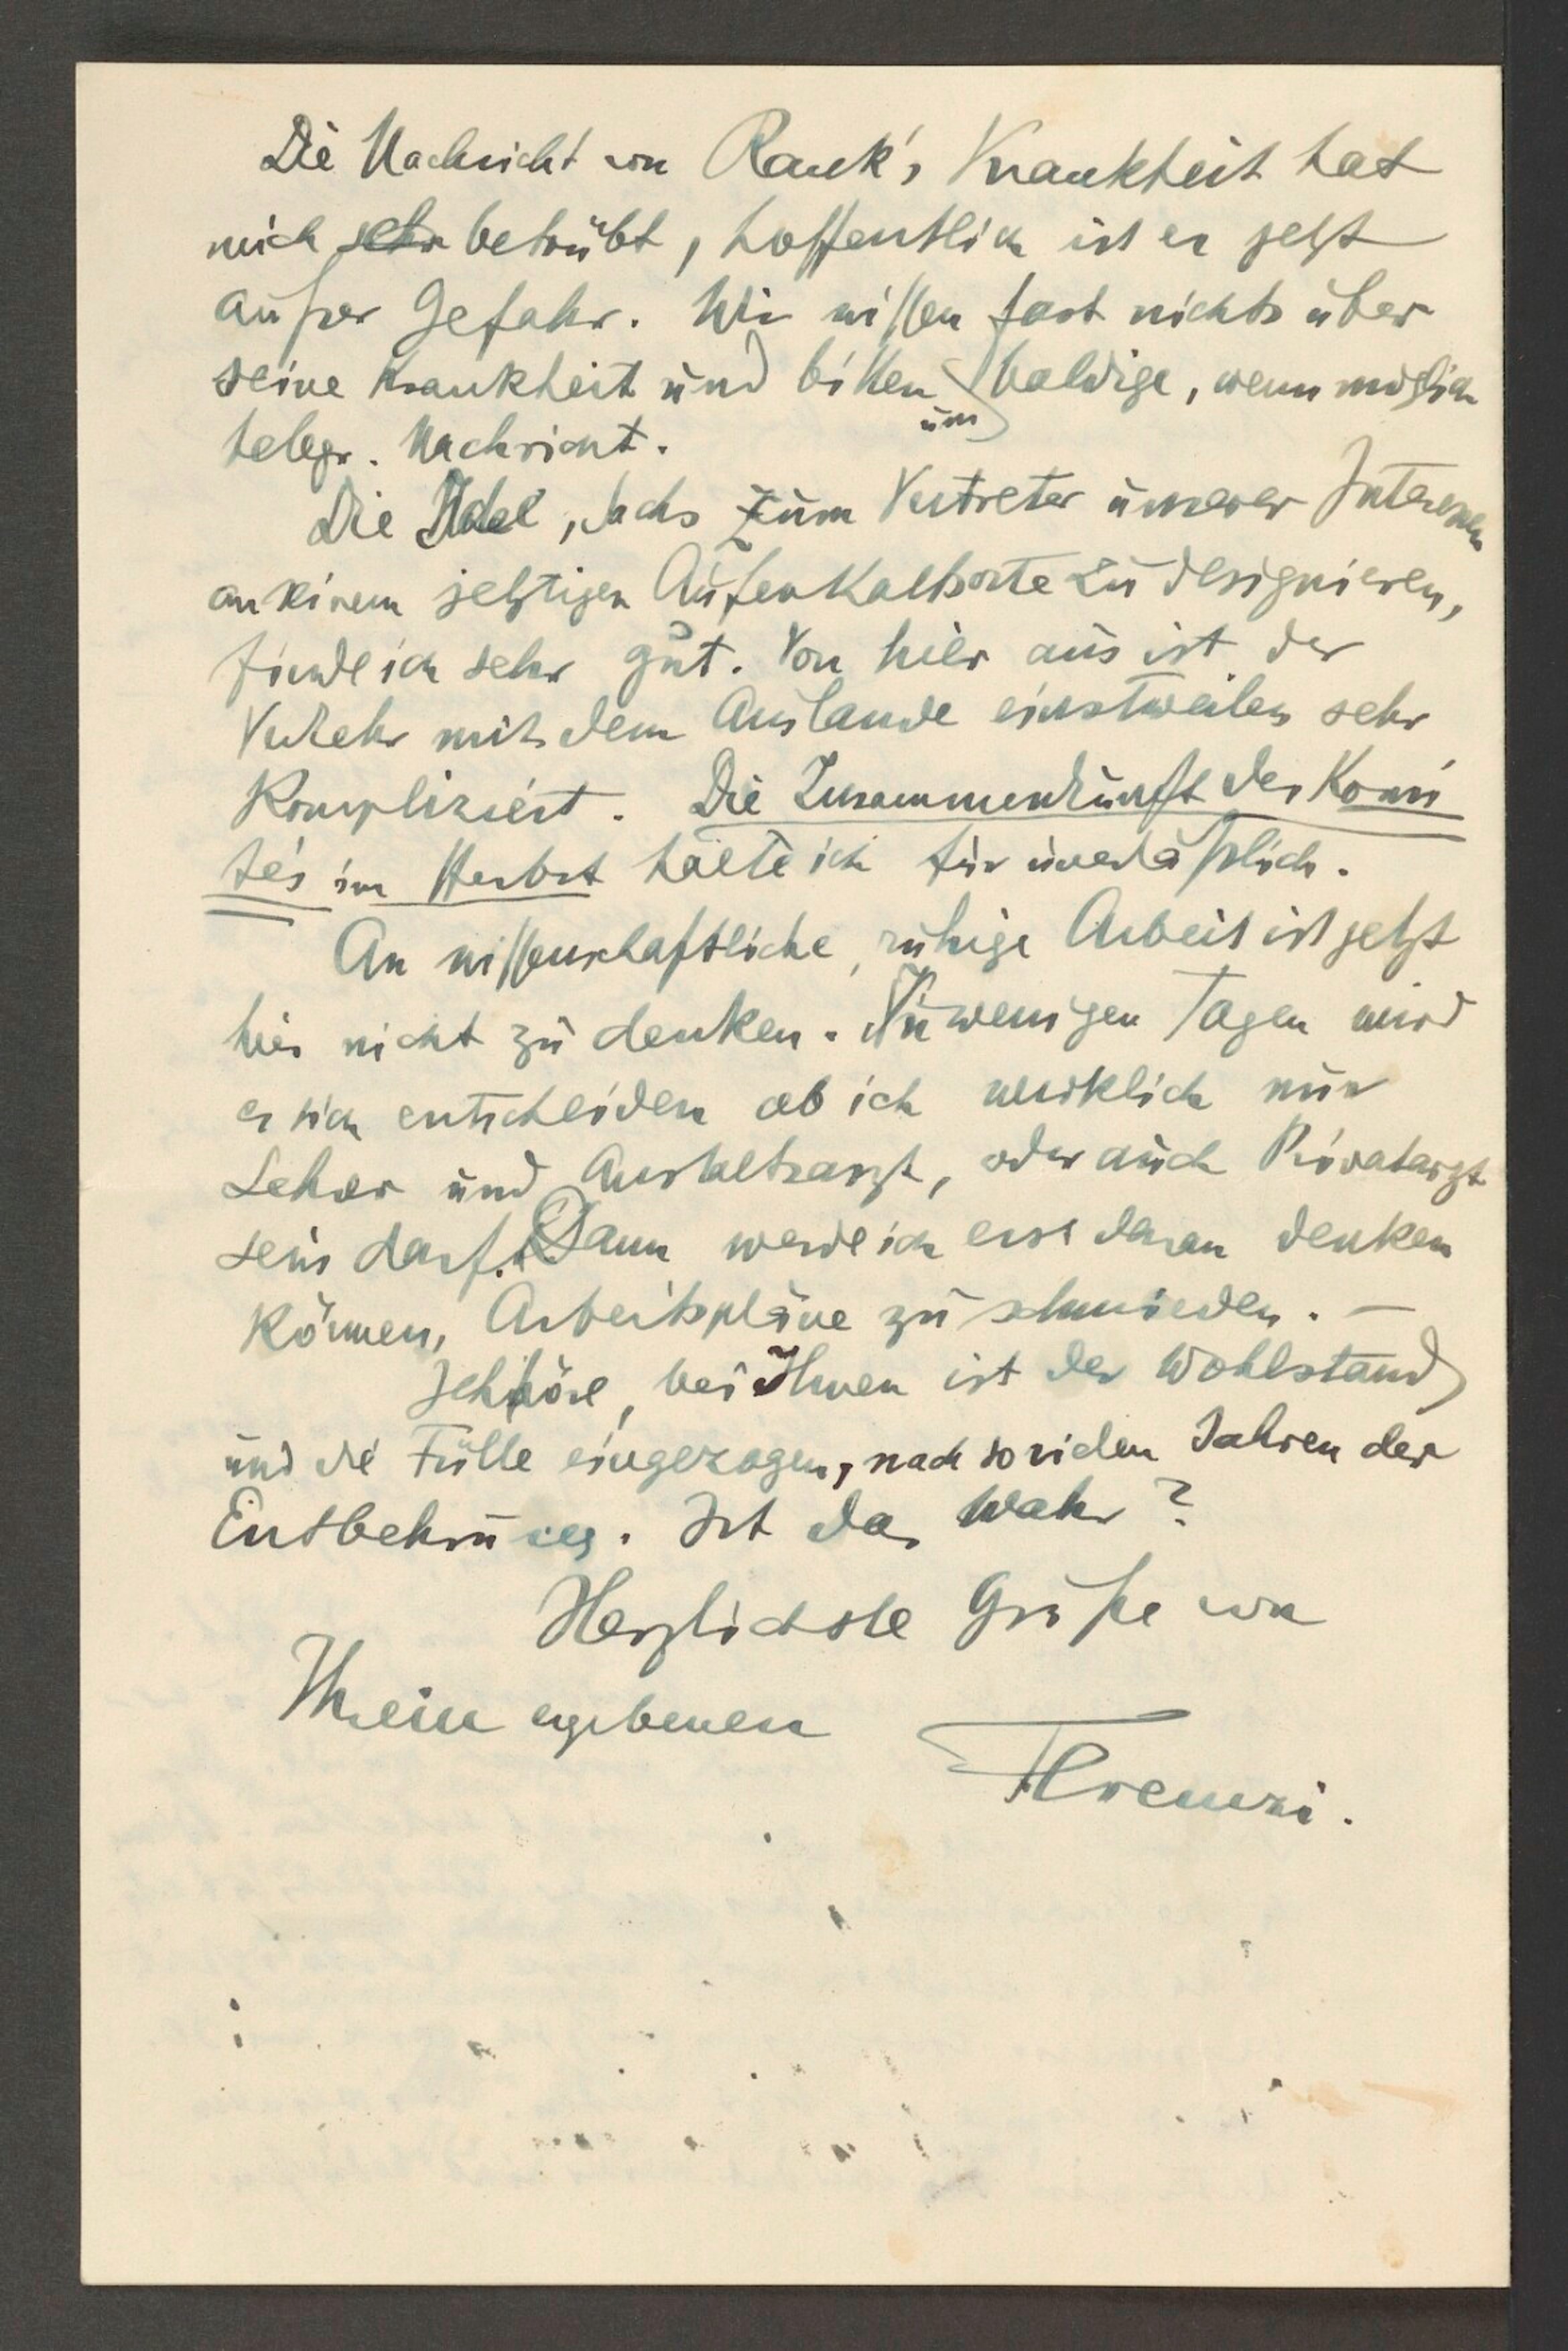 Die Nachricht von Rank's Krankheit hat
mich sehr betrübt, hoffentlich ist er jetzt
außer Gefahr. Wir wissen fast nichts über
seine Krankheit und bitten um baldige, wenn möglich
telegr. Nachricht.
Die Idee, Sachs zum Vertreter unserer Interessen
an seinem jetzigen Aufenthaltsorte zu designieren,
finde ich sehr gut. Von hier aus ist der
Verkehr mit dem Auslande einstweilen sehr
kompliziert. Die Zusammenkunft des Komi
tés im Herbst halte ich für unerläßlich.
An wissenschaftliche, ruhige Arbeit ist jetzt
hier nicht zu denken. In wenigen Tagen wird
es sich entscheiden ob ich wirklich nur
Lehrer und Anstaltsarzt, oder auch Privatarzt
sein darf. Dann werde ich erst daran denken
können, Arbeitspläne zu schmieden. –
Ich höre, bei Ihnen ist der Wohlstand
und die Fülle eingezogen, nach so vielen Jahren der
Entbehrung. Ist das wahr?
Herzlichste Grüße von
Ihrem ergebenen
Ferenczi.